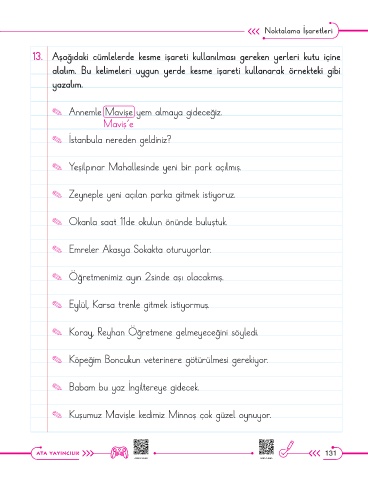 <<< Noktalama İşaretleri
13. Aşağıdaki cümlelerde kesme işareti kullanılması gereken yerleri kutu içine
alalım. Bu kelimeleri uygun yerde kesme işareti kullanarak örnekteki gibi
yazalım.
Annemle Mavişe yem almaya gideceğiz.
Maviş'e
İstanbula nereden geldiniz?
Yeşilpınar Mahallesinde yeni bir park açılmış.
Zeyneple yeni açılan parka gitmek istiyoruz.
Okanla saat 11de okulun önünde buluştuk.
Emreler Akasya Sokakta oturuyorlar.
Öğretmenimiz ayın 2sinde aşı olacakmış.
Eylül, Karsa trenle gitmek istiyormuş.
Koray, Reyhan Öğretmene gelmeyeceğini söyledi.
Köpeğim Boncukun veterinere götürülmesi gerekiyor.
Babam bu yaz İngiltereye gidecek.
Kuşumuz Mavişle kedimiz Minnoş çok güzel oynuyor.
ATA YAYINCILIK >>>
<<< 131